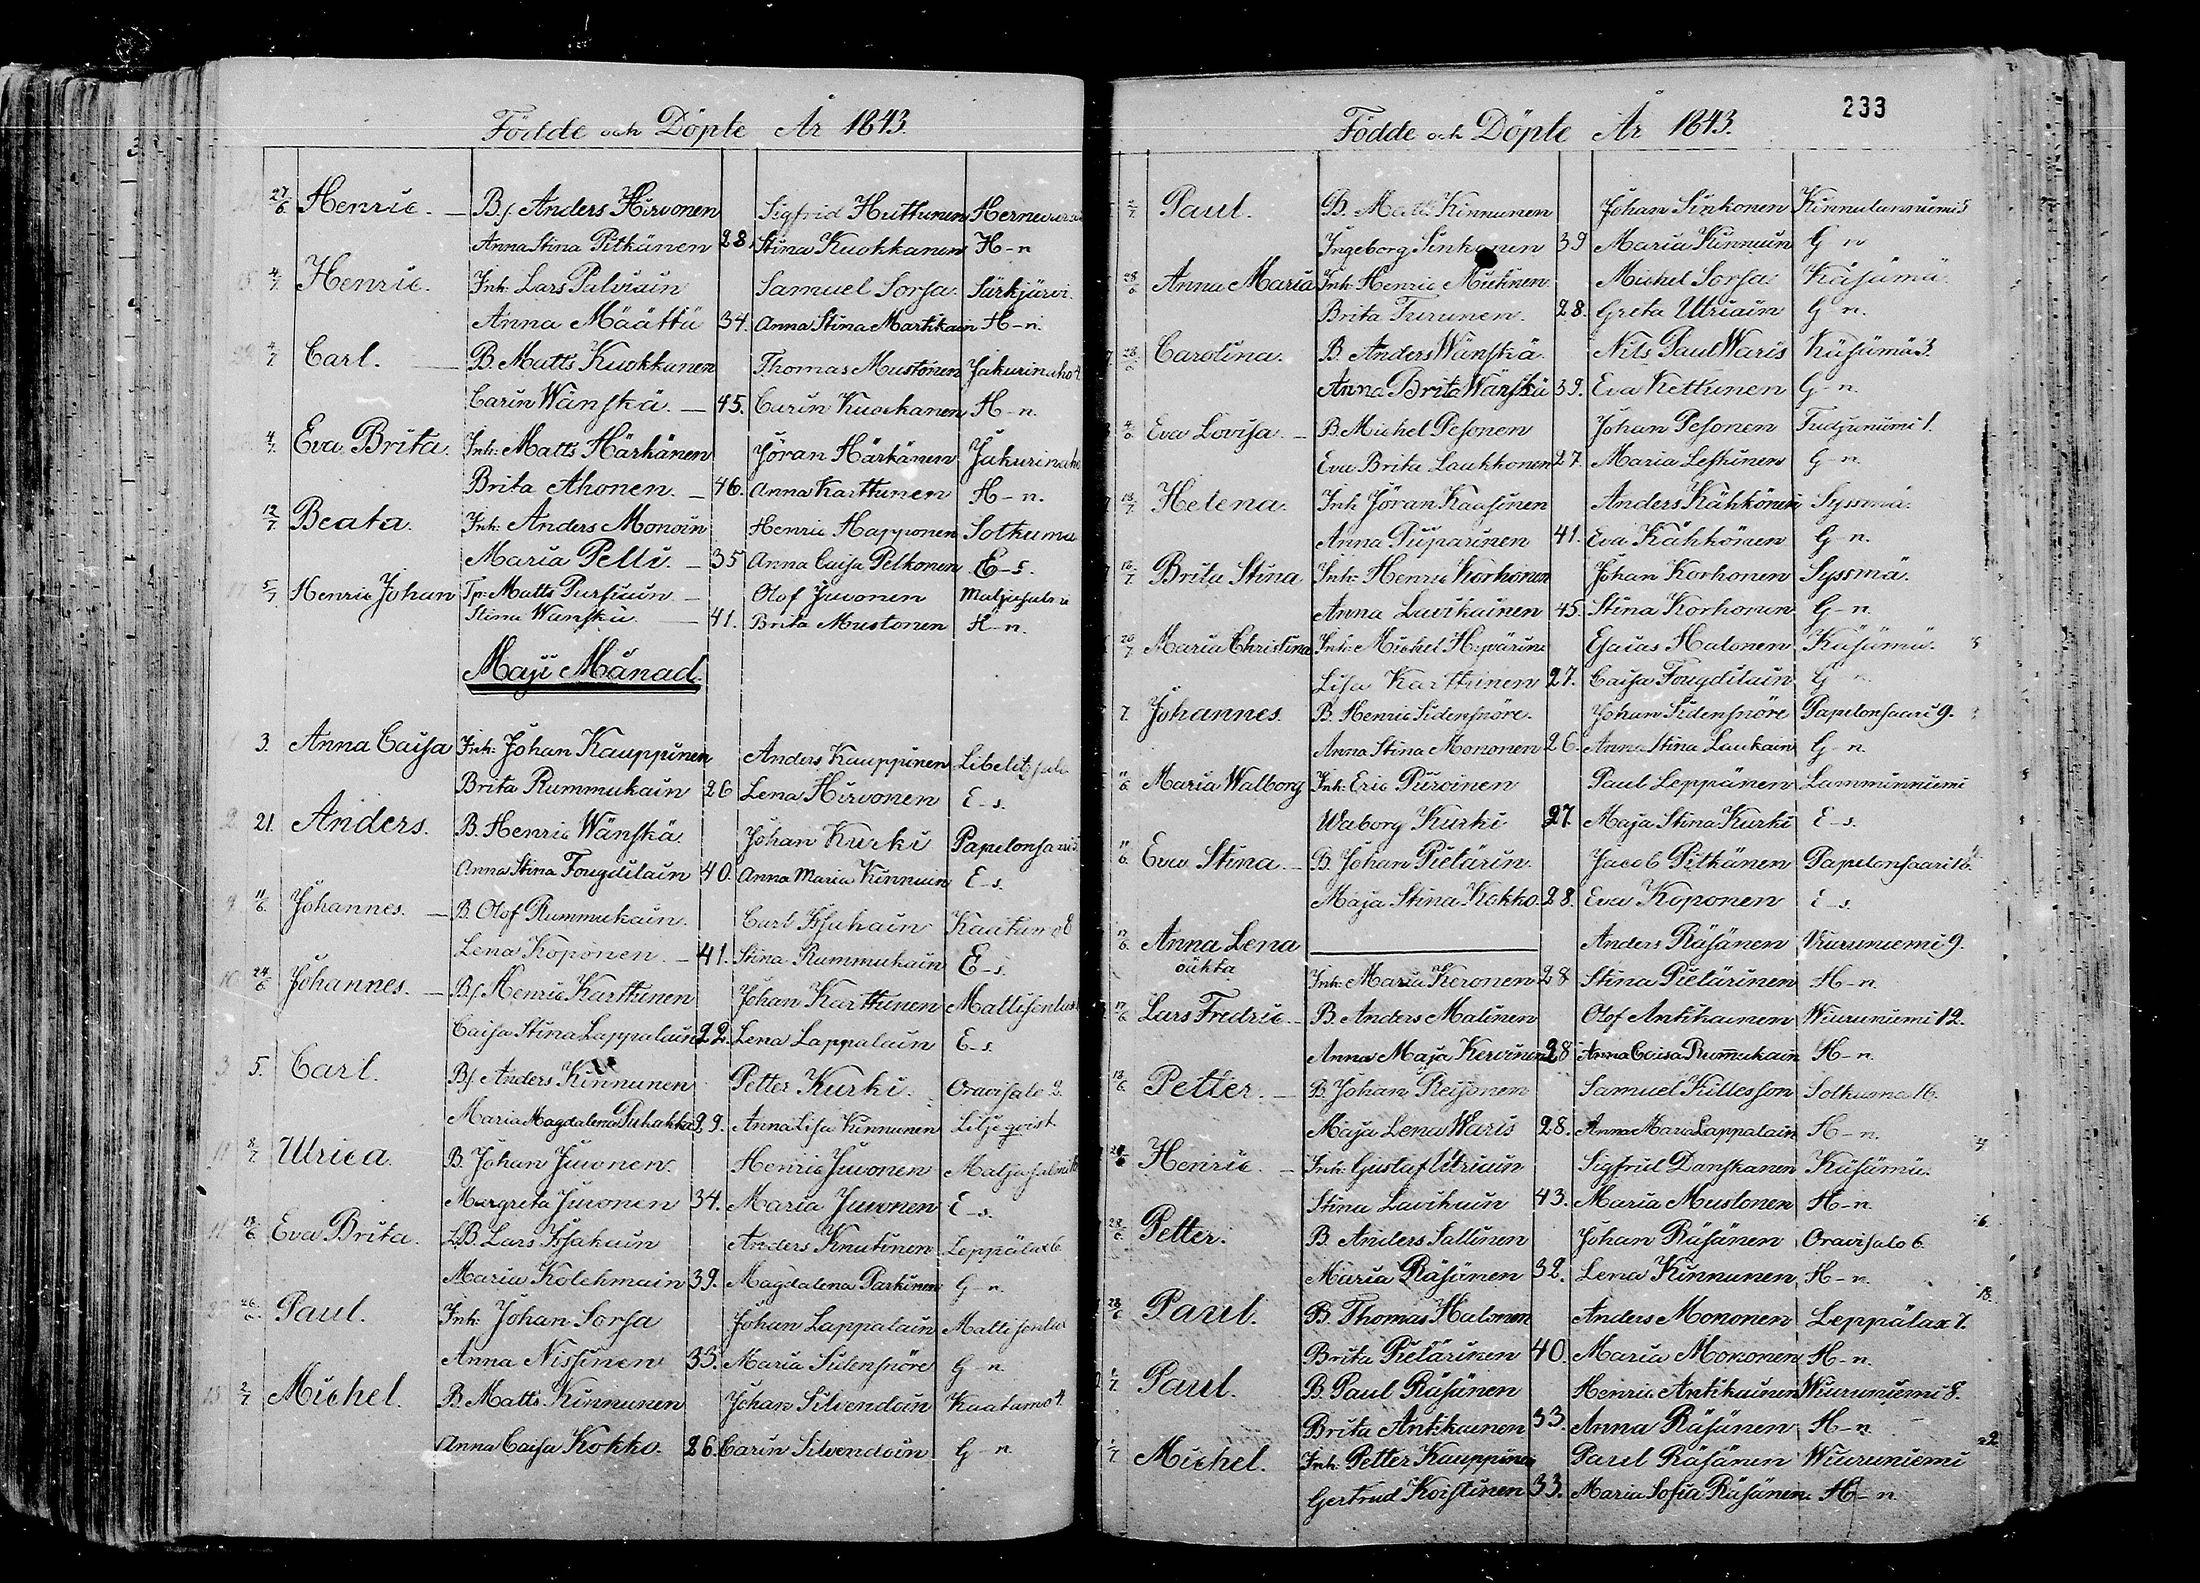 Födde och Döpte År 1843.
27/6 Henric. — B/. Anders Hirvonen Sigfrid Huttunen
Anna Stina Pitkänen 28. Stina Kuokkanen H-n
4/7 Henric. Inh. Lars Palviain Samuel Sorsa Särkjärvi.
Anna Määttä 34. Anna Stina Martikain H-n.
4/7 Carl. — B. Matts Kuokkanen Thomas Mustonen Jakurinaho 4
Carin Wänskä. — 45. Carin Kuockanen H-n.
4/7 Eva Brita. Inh: Matts Härkänen Jöran Härkänen Jakurinaho
Brita Ahonen. — 46. Anna Karttunen H-n.
12/7 Beata. Inh: Anders Monoin Henric Happonen Sotkuma
Maria Pelli. — 35 Anna Caisa Pelkonen E-s.
5/7 Henric Johan Tp: Matts Pursiain — Olof Juvonen
Stina Wanskä — 41. Brita Mustonen H-n.
Maji Månad.
3. Anna Caisa Inh: Johan Kauppinen Anders Kauppinen
Brita Rummukain 26 Lena Hirvonen E-s.
21. Anders. B. Henric Wänskä. Johan Kurki
Anna Stina Fougdilain 40. Anna Maria Kinnuin E-s.
11/6. Johannes. — B. Olof Rummukain. Carl Issakain Kaatamo 8
Lena Koponen. — 41. Stina Rummukain E-s.
24/6 Johannes. — B/. Henric Karttunen Johan Karttunen
Caisa Stina Lappalain 22. Lena Lappalain E-s.
5. Carl. B/. Anders Kinnunen Petter Kurki. Oravisalo 2.
Maria Magdalena Puhakka 29. Anna Lisa Kinnunen Liljeqvist
8/7 Ulrica. B. Johan Juvonen. Henric Juvonen
Margreta Juvonen 34. Maria Juvonen E-s.
13/6 Eva Brita. LB. Lars Issakain Anders Knutinen Leppälax 6
Maria Kolehmain 39. Magdalena Parkinen G-n.
26/6. Paul. Inh: Johan Sorsa Johan Lappalain
Anna Nissinen 33. Maria Sidensnöre G-n
2/7 Michel. B. Matts Kinnunen Johan Silvendoin Kaatamo 4.
Anna Caisa Kokko. 26. Carin Silvendoin G-n
233
Födde och Döpte År 1843.
2/7. Paul. B. Matts Kinnunen Johan Sinkonen Kinnulanniemi 5
Ingeborg Sinkonen 39 Maria Kinnuin G n
28/6 Anna Maria Inh: Henric Miettinen. Michel Sorsa. Käsämä.
Brita Turunen. 28. Greta Utriain G-n.
28/6 Carolina. B. Anders Wänskä. Nils Paul Waris Käsämä 3.
Anna Brita Wänskä 39. Eva Kettunen G-n.
4/6 Eva Lovisa. — B. Michel Pesonen Johan Pesonen
Eva Brita Laukkonen 27. Maria Leskinen G-n.
13/7 Helena. Inh: Jöran Kaasinen Anders Kähkönen Syssmä.
Anna Piiparinen 41. Eva Kähkönen G-n.
16/7 Brita Stina Inh: Henric Korhonen Johan Korhonen Syssmä.
Anna Lavikainen 45. Stina Korhonen G-n.
20/7 Maria Christina Inh: Michel Hyvärin Esaias Halonen Käsämä.
Lisa Karttunen 27. Caisa Fougdilain G n
7. Johannes. B. Henric Sidensnöre. Johan Sidensnöre Papelonsaari 9.
Anna Stina Mononen 26. Anna Stina Laukain G-n.
11/6 Maria Walborg Inh: Eric Puroinen Paul Leppänen Lamminniemi
Waborg Kurki 27. Maja Stina Kurki E-s.
11/6. Eva Stina. — B. Johan Pielärin. Jacob Pitkänen Papelonsaari 16.
Maja Stina Kokko. 28. Eva Koponen E-s
17/6. Anna Lena — Anders Räsänen Wiuruniemi 9.
oäkta Inh: Maria Keronen 28 Stina Pietärinen H-n.
17/6 Lars Fredric. — B. Anders Malinen Olof Antikainen Wiuruniemi 12.
Anna Maja Kervinen 28 Anna Caisa Rummukain H-n.
18/6 Petter. — B. Johan Reijonen Samuel Killesson Sotkuma 16.
Maja Lena Waris 28. Anna Maria Lappalain H-n.
24/6 Henric. — Inh: Gustaf Utriain Sigfrid Danskanen Käsämä.
Stina Lavikain 43. Maria Mustonen H-n.
28/6 Petter. B. Anders Sallinen Johan Räsänen Oravisalo 6.
Maria Räsänen 32. Lena Kinnunen H-n.
28/6 Paul. B. Thomas Halonen Anders Mononen Leppälax 7.
Brita Pietärinen 40. Maria Mononen H-n.
1/7 Paul. B. Paul Räsänen Henric Antikainen Wiuruniemi 8.
Brita Antikainen 33. Anna Räsänen H-n
1/7 Michel. Inh: Petter Kauppinen Paul Räsänen Wiuruniemi
Gertrud Koistinen 33. Maria Sofia Räsänen. H-n.